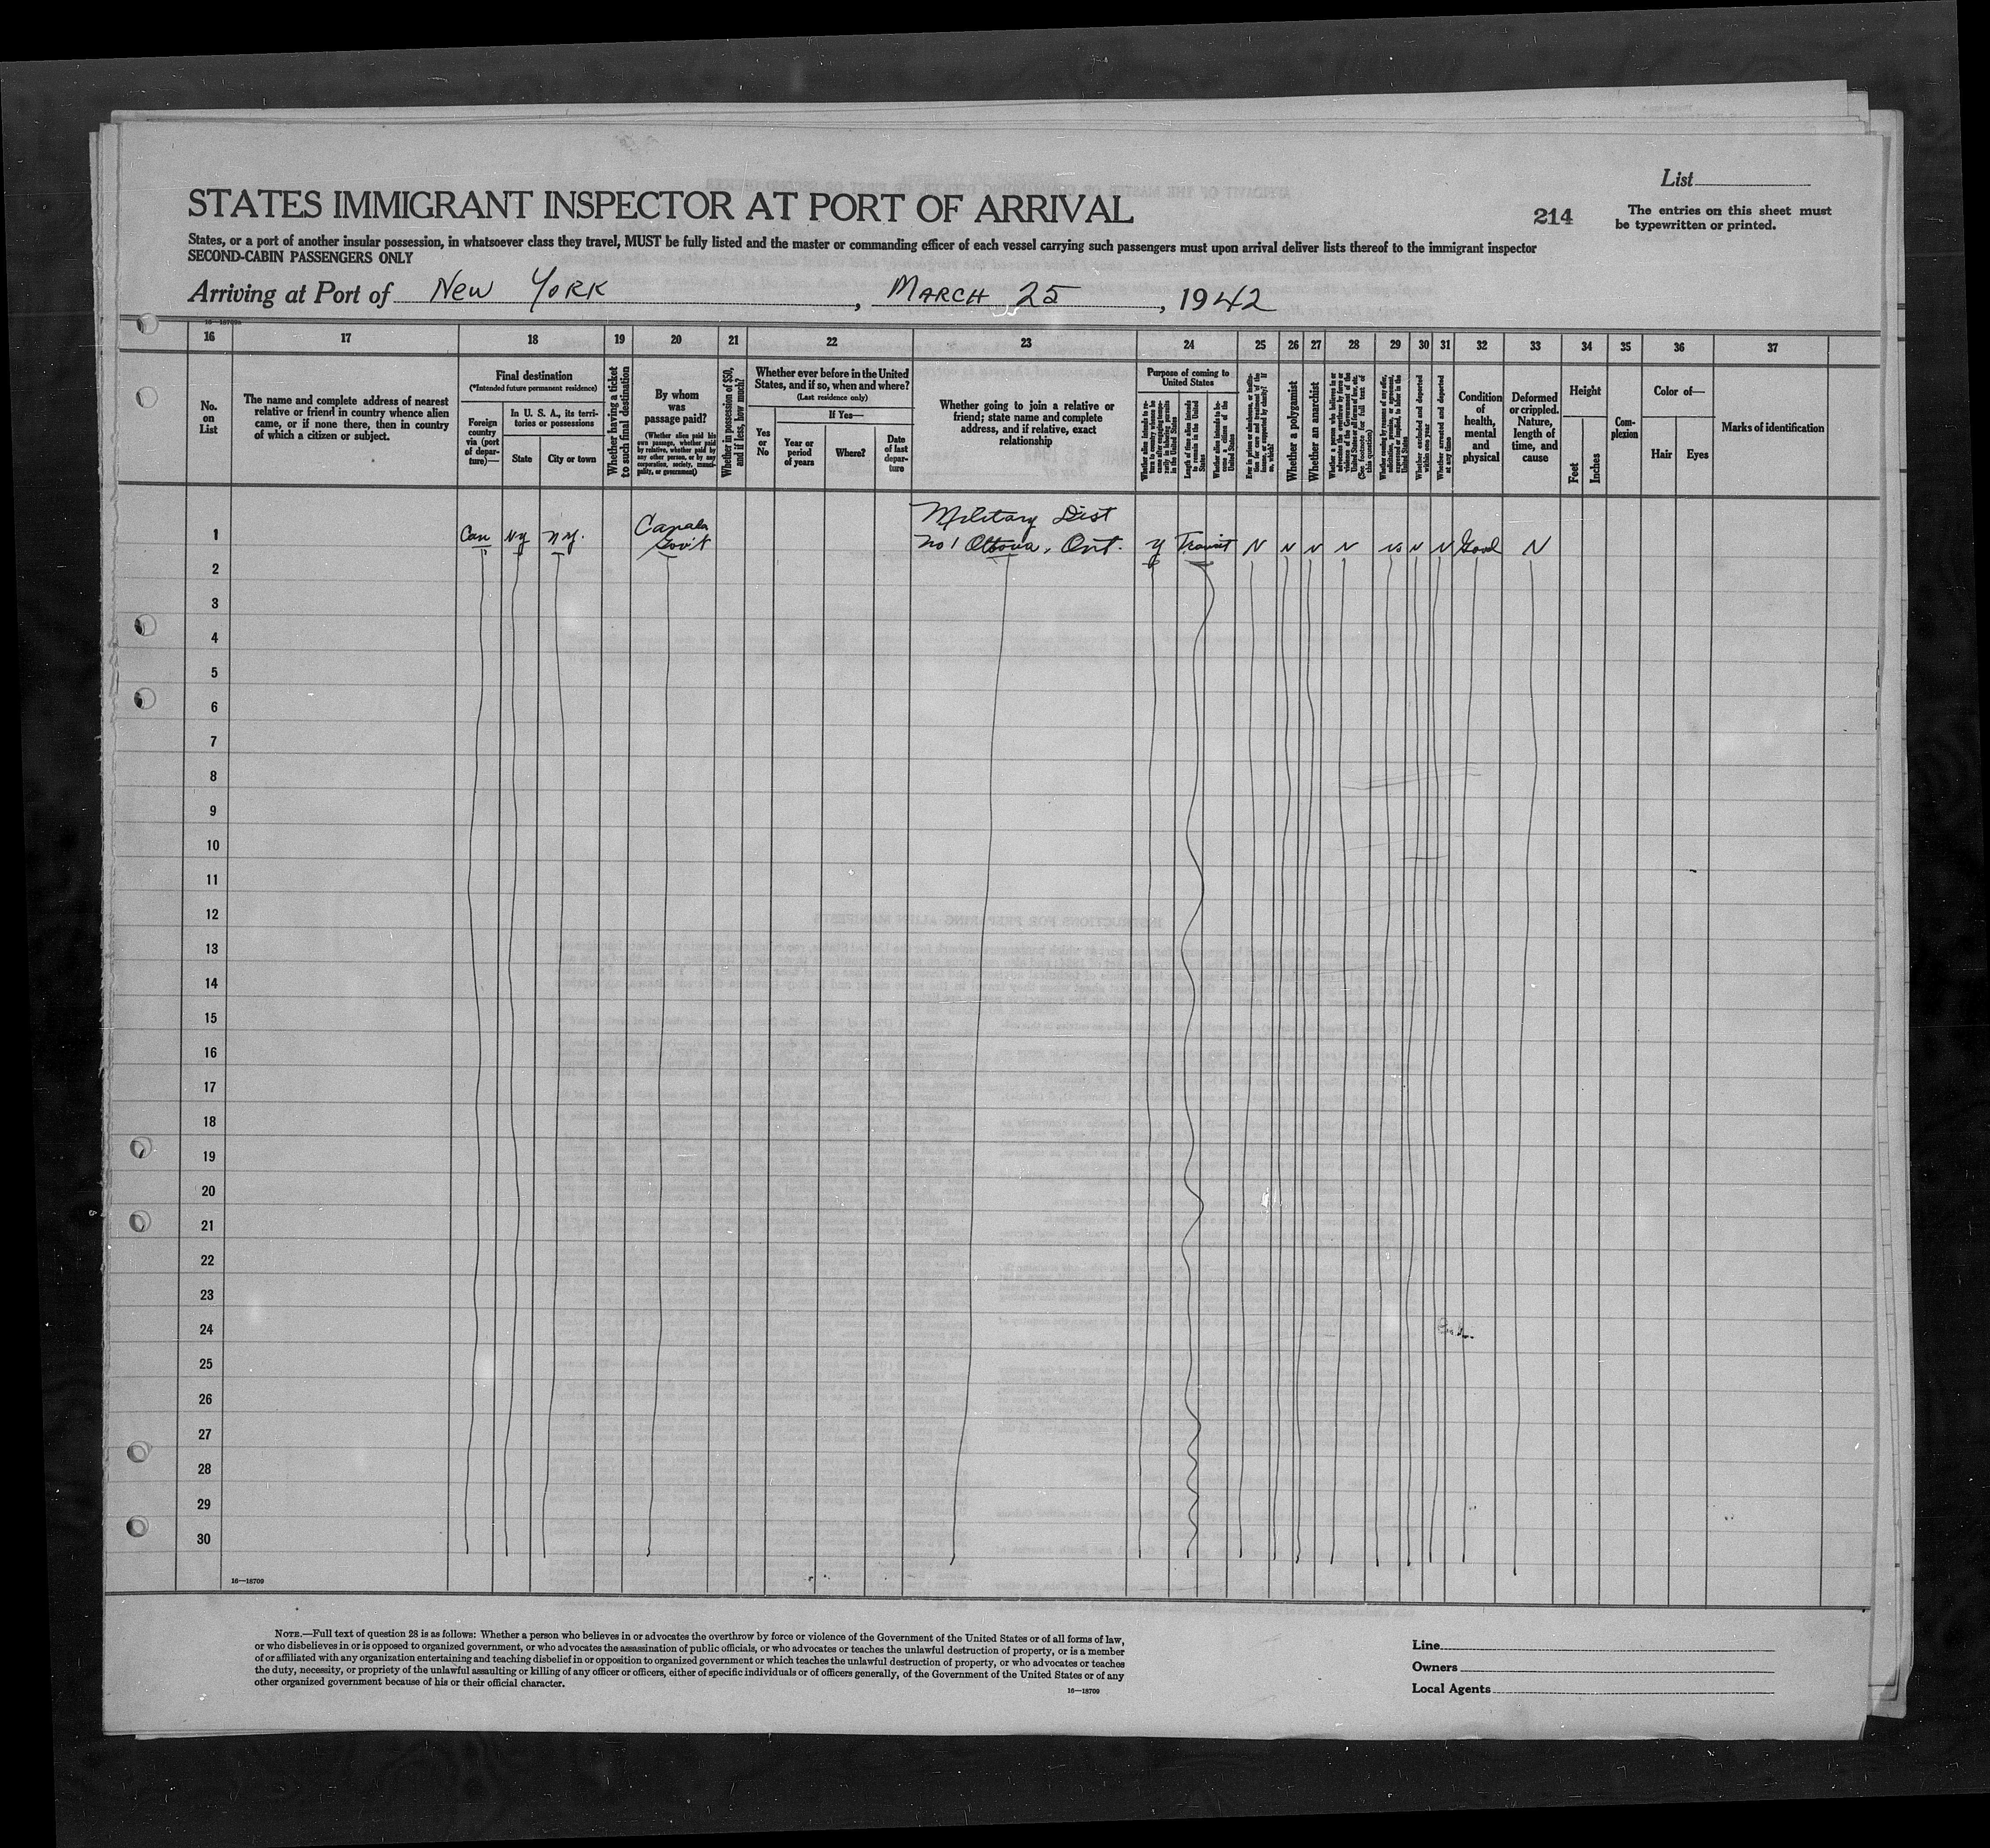 List
STATES IMMIGRANT INSPECTOR AT PORT OF ARRIVAL
214
The entries on this sheet must
be typewritten or printed.
States, or a port of another insular possession, in whatsoever class they travel, MUST be fully listed and the master or commanding officer of each vessel carrying such passengers must upon arrival deliver lists thereof to the immigrant inspector
SECOND-CABIN PASSENGERS ONLY
Arriving at Port of New York, March 25, 1942
16 17 18 19 20 21 22 23 24 25 26 27 28 29 30 31 32 33 34 35 36 37
No.
on
List
The name and complete address of nearest
relative or friend in country whence alien
came, or if none there, then in country
of which a citizen or subject.
Final destination
(*Intended future permanent residence)
Foreign
country
via (port
of depar-
ture)—
In U. S. A., its terri-
tories or possessions
State
City or town
Whether having a ticket
to such final destination
By whom
was
passage paid?
(Whether alien paid his
own passage, whether paid
by relative, whether paid by
any other person, or by any
corporation, society, munici-
pality, or government)
Whether in possession of $50,
and if less, how much?
Whether ever before in the United
States, and if so, when and where?
(Last residence only)
Yes
or
No
If Yes—
Year or
period
of years
Where?
Date
of last
depar-
ture
Whether going to join a relative or
friend; state name and complete
address, and if relative, exact
relationship
Purpose of coming to
United States
Length of time alien intends
to remain in the United
States
Whether alien intends to be-
come a citizen of the
United States
Whether a polygamist
Whether an anarchist
Condition
of
health,
mental
and
physical
Deformed
or crippled.
Nature,
length of
time, and
cause
Height
Feet
Inches
Com-
plexion
Color of—
Hair
Eyes
Marks of identification
Military Dist
1 Can Ny N.Y. Canada Gov't No 1 Ottowa, Ont. Y Transit N N N N No N N Good N
2
3
4
5
6
7
8
9
10
11
12
13
14
15
16
17
18
19
20
21
22
23
24
25
26
27
28
29
30
16—18709
NOTE.—Full text of question 28 is as follows: Whether a person who believes in or advocates the overthrow by force or violence of the Government of the United States or of all forms of law,
or who disbelieves in or is opposed to organized government, or who advocates the assassination of public officials, or who advocates or teaches the unlawful destruction of property, or is a member
of or affiliated with any organization entertaining and teaching disbelief in or opposition to organized government or which teaches the unlawful destruction of property, or who advocates or teaches
the duty, necessity, or propriety of the unlawful assaulting or killing of any officer or officers, either of specific individuals or of officers generally, of the Government of the United States or of any
other organized government because of his or their official character.
16—18709
Line
Owners
Local Agents